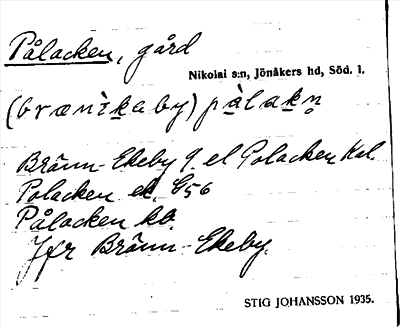 Pålacken, gård
Nikolai s:n, Jönåkers hd, Söd. l.
(brænìkeby) pàlakn̥
Bränn-Ekeby l. el Polacken Kal.
Polacken ek. G56
Pålacken kb.
Jfr Bränn-Ekeby.
STIG JOHANSSON 1935.